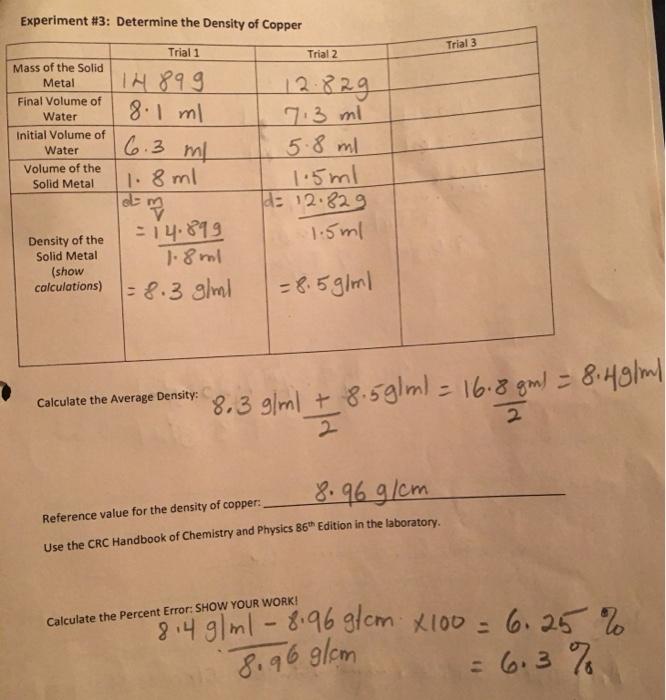 Experiment #3: Determine the Density of Copper
Trial 1 Trial 2 Trial 3
Mass of the Solid Metal 14 89g 12.82g
Final Volume of Water 8.1 ml 7.3 ml
Initial Volume of Water 6.3 ml 5.8 ml
Volume of the Solid Metal 1.8 ml 1.5ml
Density of the Solid Metal (show calculations)
d= m/V d= 12.82g/1.5ml
= 14.89g/1.8ml
= 8.3 g/ml = 8.5g/ml
Calculate the Average Density: 8.3 g/ml + 8.5g/ml = 16.8 gml = 8.4g/ml
2 2
Reference value for the density of copper: 8.96 g/cm
Use the CRC Handbook of Chemistry and Physics 86th Edition in the laboratory.
Calculate the Percent Error: SHOW YOUR WORK!
8.4 g/ml - 8.96 g/cm x100 = 6.25 %
8.96 g/cm = 6.3 %